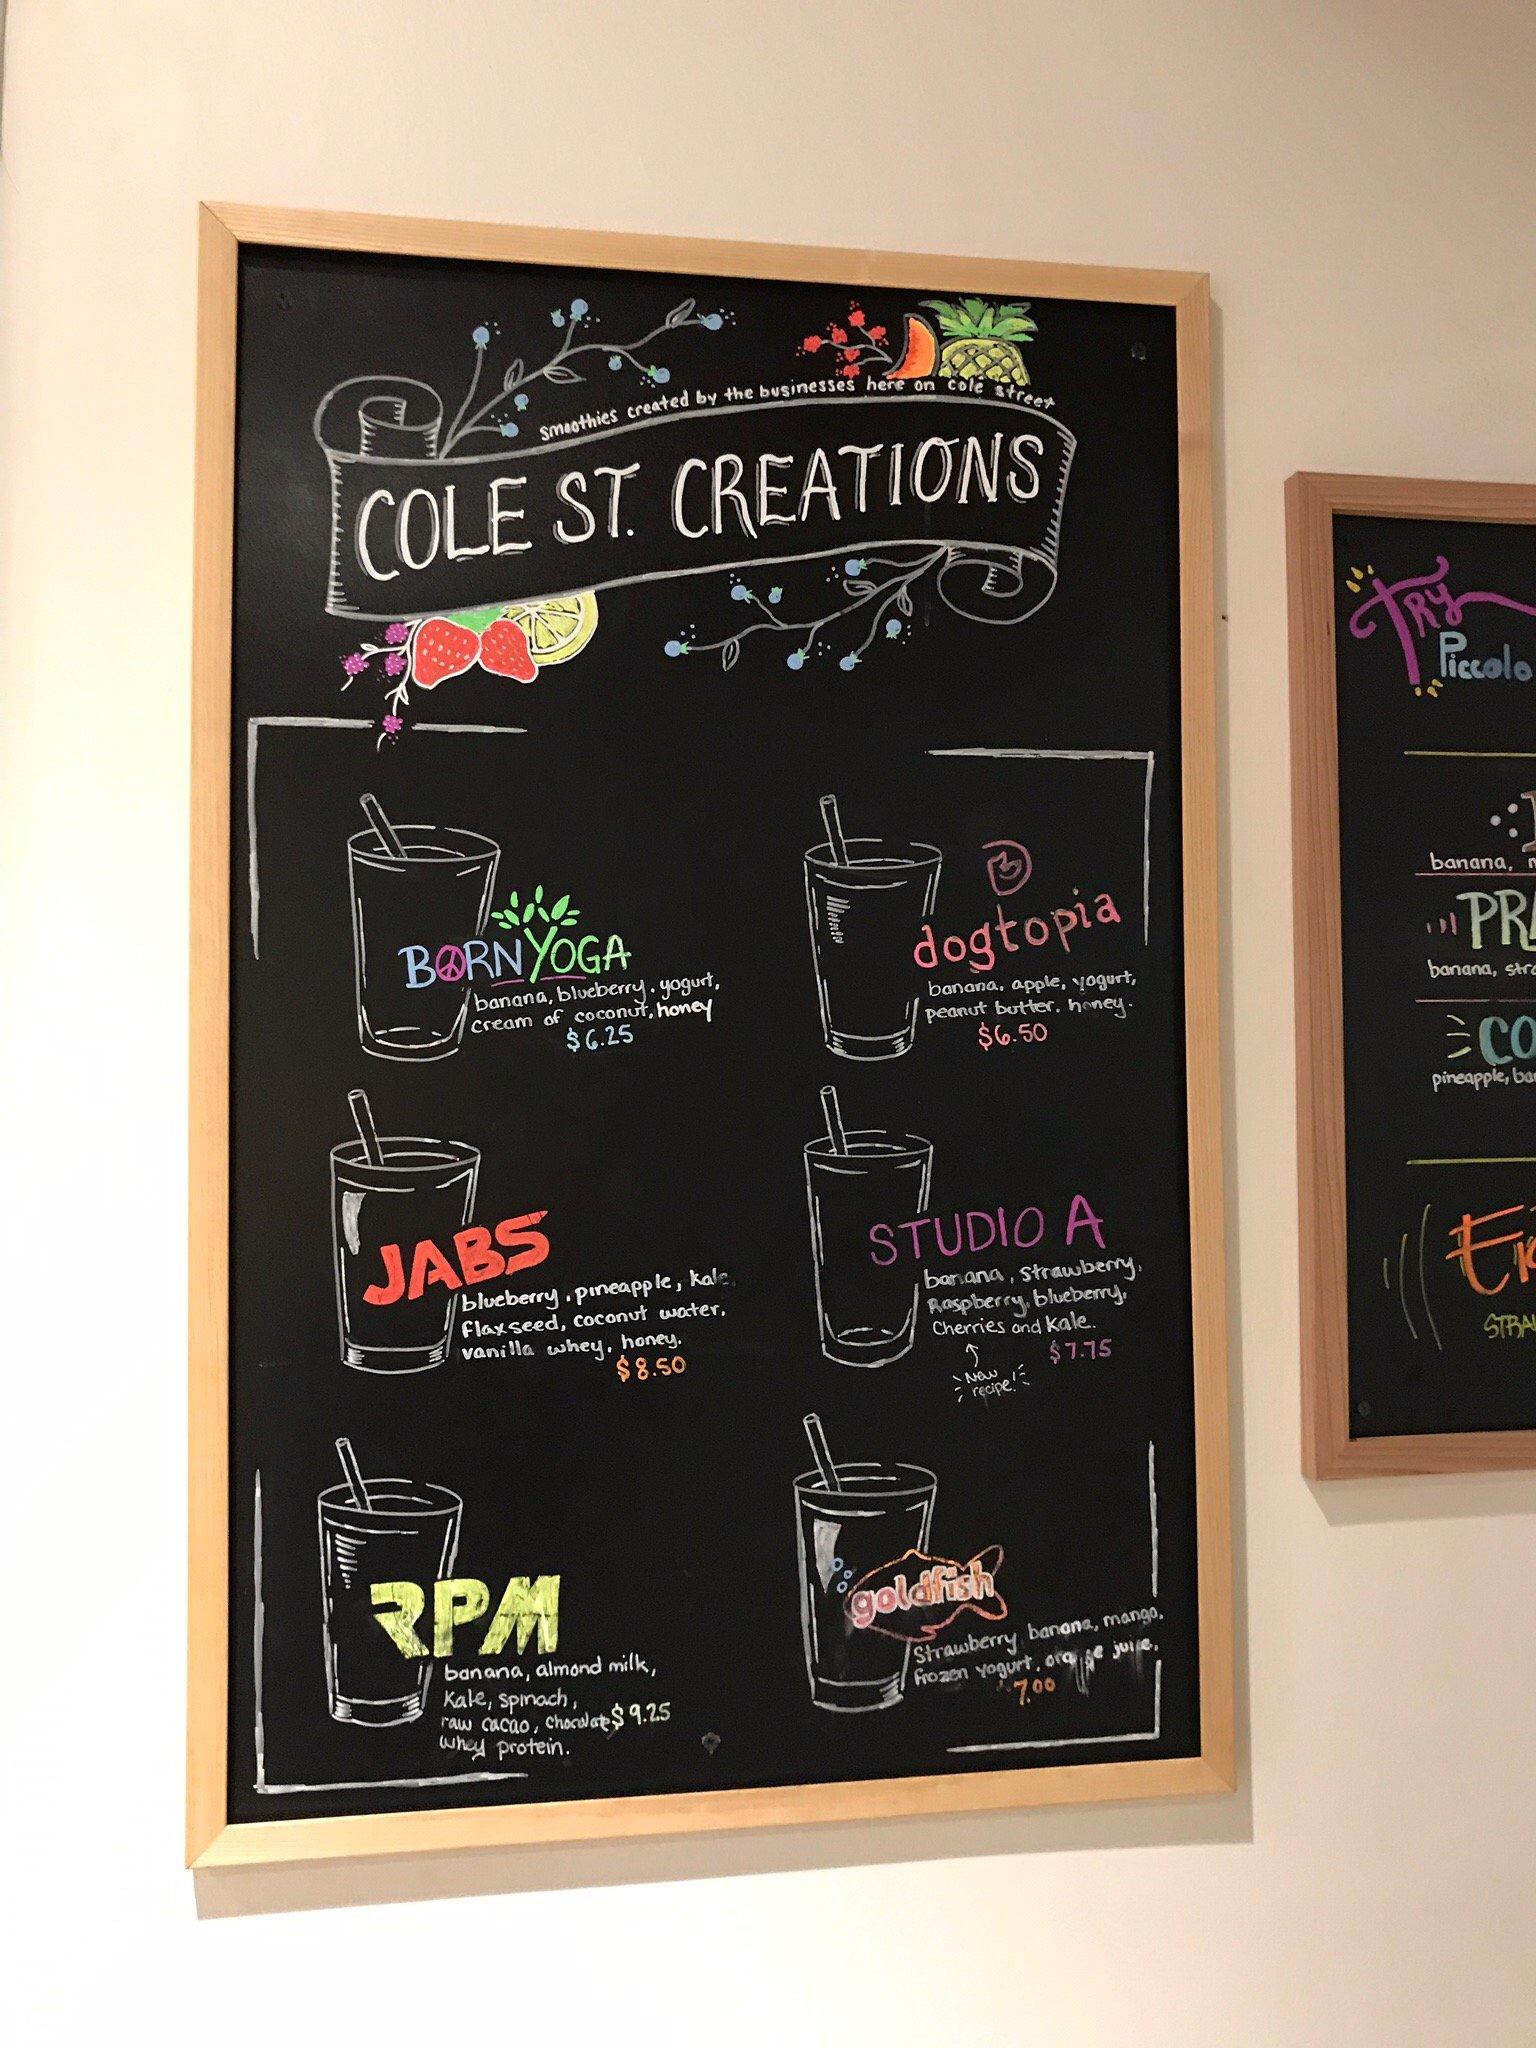 smoothies created by the businesses here on cole street
COLE ST. CREATIONS
BORN YOGA
banana, blueberry, yogurt,
cream of coconut, honey
$6.25
dogtopia
banana, apple, yogurt,
peanut butter, honey.
$6.50
JABS
blueberry, pineapple, kale,
flaxseed, coconut water,
vanilla whey, honey.
$8.50
STUDIO A
banana, strawberry,
Raspberry, blueberry,
Cherries and kale.
$7.75
New
recipe!
RPM
banana, almond milk,
kale, spinach,
raw cacao, chocolate $9.25
whey protein.
goldfish
Strawberry, banana, mango,
frozen yogurt, orange juice.
7.00
TRY
Piccolo
banana,
PRA
banana, stra
CO
pineapple, ba
STRA